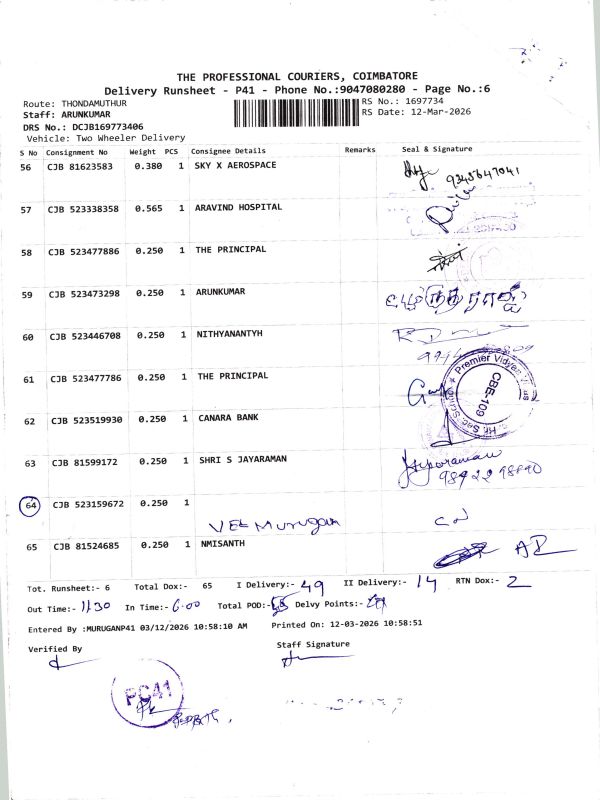 THE PROFESSIONAL COURIERS, COIMBATORE
Delivery Runsheet - P41 - Phone No.:9047080280 - Page No.:6
Route: THONDAMUTHUR
RS No.: 1697734
Staff: ARUNKUMAR
RS Date: 12-Mar-2026
DRS No.: DCJB169773406
Vehicle: Two Wheeler Delivery
S No Consignment No Weight PCS Consignee Details Remarks Seal & Signature
56 CJB 81623583 0.380 1 SKY X AEROSPACE 9345647041
57 CJB 523338358 0.565 1 ARAVIND HOSPITAL
58 CJB 523477886 0.250 1 THE PRINCIPAL
59 CJB 523473298 0.250 1 ARUNKUMAR
60 CJB 523446708 0.250 1 NITHYANANTYH
61 CJB 523477786 0.250 1 THE PRINCIPAL
Premier Vidya
CBE-109
62 CJB 523519930 0.250 1 CANARA BANK
63 CJB 81599172 0.250 1 SHRI S JAYARAMAN
64 CJB 523159672 0.250 1
VEL Murugan
65 CJB 81524685 0.250 1 NMISANTH
Tot. Runsheet:- 6 Total Dox:- 65 I Delivery:- 49 II Delivery:- 14 RTN Dox:- 2
Out Time:- 11.30 In Time:- 6.00 Total POD:- Delvy Points:-
Entered By :MURUGANP41 03/12/2026 10:58:10 AM Printed On: 12-03-2026 10:58:51
Verified By Staff Signature
PC41